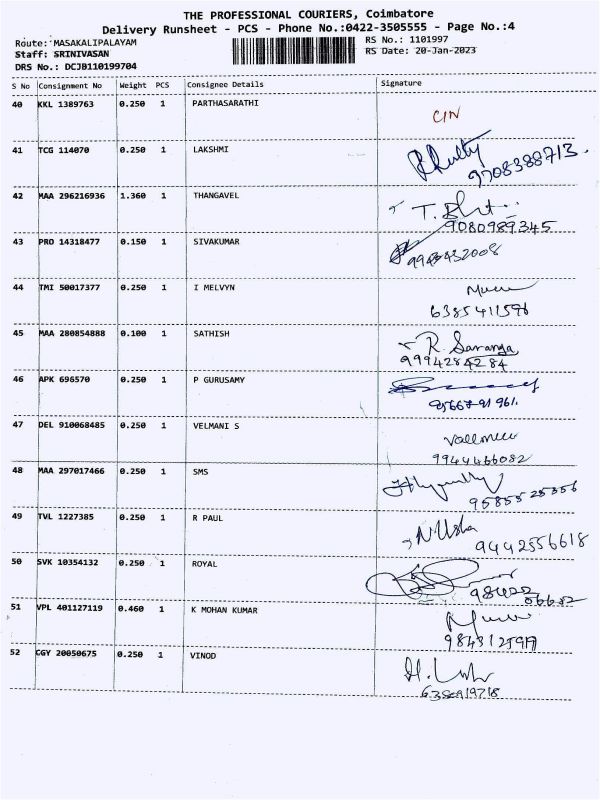 THE PROFESSIONAL COURIERS, Coimbatore
Delivery Runsheet - PCS - Phone No.:0422-3505555 - Page No.:4
Route: MASAKALIPALAYAM
Staff: SRINIVASAN
DRS No.: DCJB110199704
RS No.: 1101997
RS Date: 20-Jan-2023
S No Consignment No Weight PCS Consignee Details Signature
40 KKL 1389763 0.250 1 PARTHASARATHI
CIN
41 TCG 114070 0.250 1 LAKSHMI
42 MAA 296216936 1.360 1 THANGAVEL
9080989345
43 PRO 14318477 0.150 1 SIVAKUMAR
44 TMI 50017377 0.250 1 I MELVYN
6385411596
45 MAA 280854888 0.100 1 SATHISH
R. Saranya
9994284284
46 APK 696570 0.250 1 P GURUSAMY
47 DEL 910068485 0.250 1 VELMANI S
9944466082
48 MAA 297017466 0.250 1 SMS
9585525356
49 TVL 1227385 0.250 1 R PAUL
N Usha
9442556618
50 SVK 10354132 0.250 1 ROYAL
51 VPL 401127119 0.460 1 K MOHAN KUMAR
52 CGY 20050675 0.250 1 VINOD